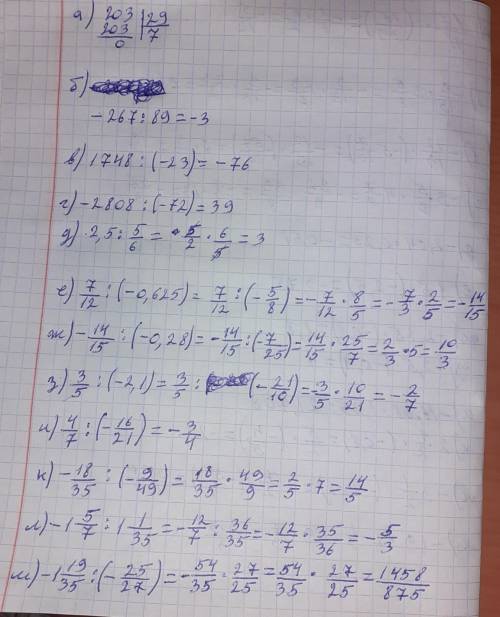 а) 203 | 29
203   7
0
б)
- 267 : 89 = -3
в) 1748 : (-23) = -76
г) -2808 : (-72) = 39
д) 2,5 : 5/6 = 5/2 · 6/5 = 3
е) 7/12 : (-0,625) = 7/12 : (-5/8) = -7/12 · 8/5 = -7/3 · 2/5 = -14/15
ж) -14/15 : (-0,28) = -14/15 : (-7/25) = 14/15 · 25/7 = 2/3 · 5 = 10/3
з) 3/5 : (-2,1) = 3/5 : (-21/10) = 3/5 · 10/21 = -2/7
и) 4/7 : (-16/21) = -3/4
к) -18/35 : (-9/49) = 18/35 · 49/9 = 2/5 · 7 = 14/5
л) -1 5/7 : 1 1/35 = -12/7 : 36/35 = -12/7 · 35/36 = -5/3
м) -1 19/35 : (-25/27) = -54/35 · 27/25 = 54/35 · 27/25 = 1458/875